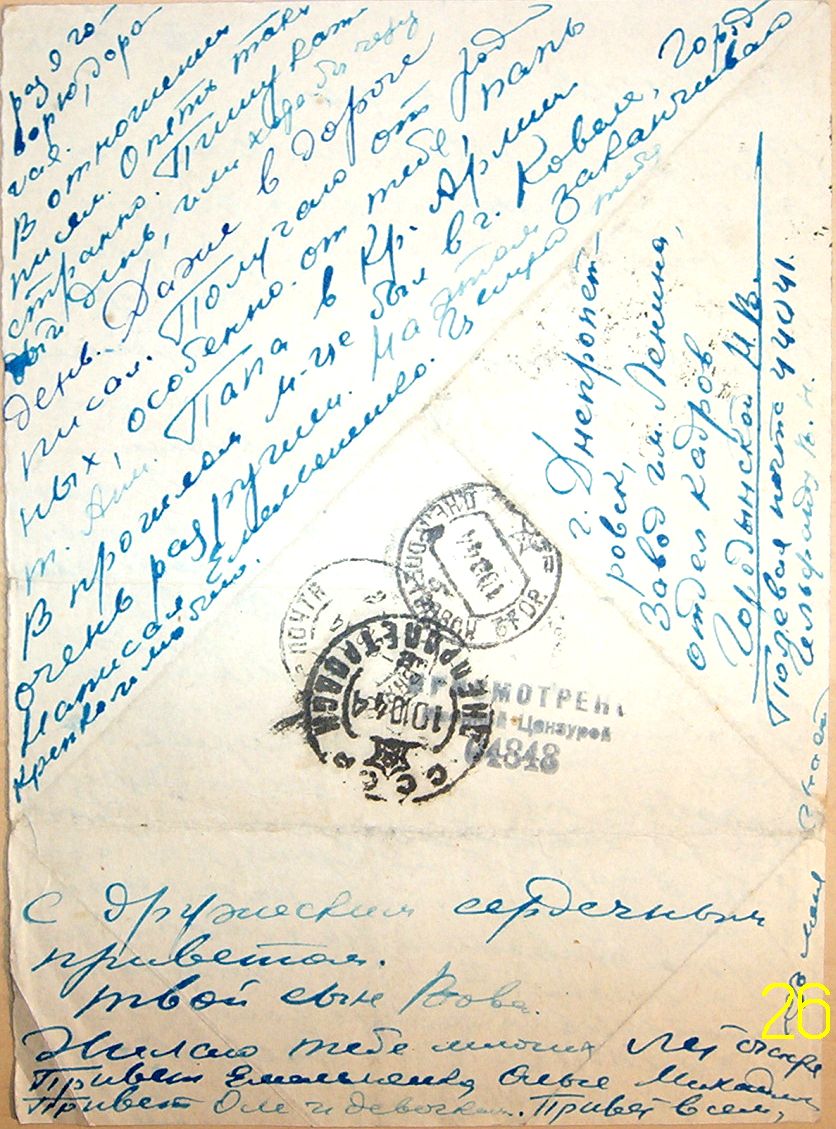 раз я го-
ворю, дора-
гая.
В отношении
писем. Опять таки
странно. Пишу каж-
дый день, или хотя бы через
день. Даже в дороге
писал. Получаю от род-
ных, особенно от тебя, папы
т. Ани. Папа в Кр. Армии
В прошлом м-це был в г. Ковеле, Город
очень разрушен. На этом заканчиваю
Написал Емельяненко. Целую тебя
крепко
г. Днепропет,
ровск,
Завод им. Ленина,
отдел кадров
Городынской М.В.
Полевая почта 44041.
Гельфанду В. Н.
ПОЧТА
10 10 44
ДНЕПРОПЕТРОВСК
СССР
ПРОСМОТРЕНО
Военной Цензурой
04848
С дружеским сердечным
приветом.
твой сын Вова.
Желаю тебе много лет
Привет Емельяненко, Ольге Михайл
Привет Оле и девочкам. Привет всем,
26